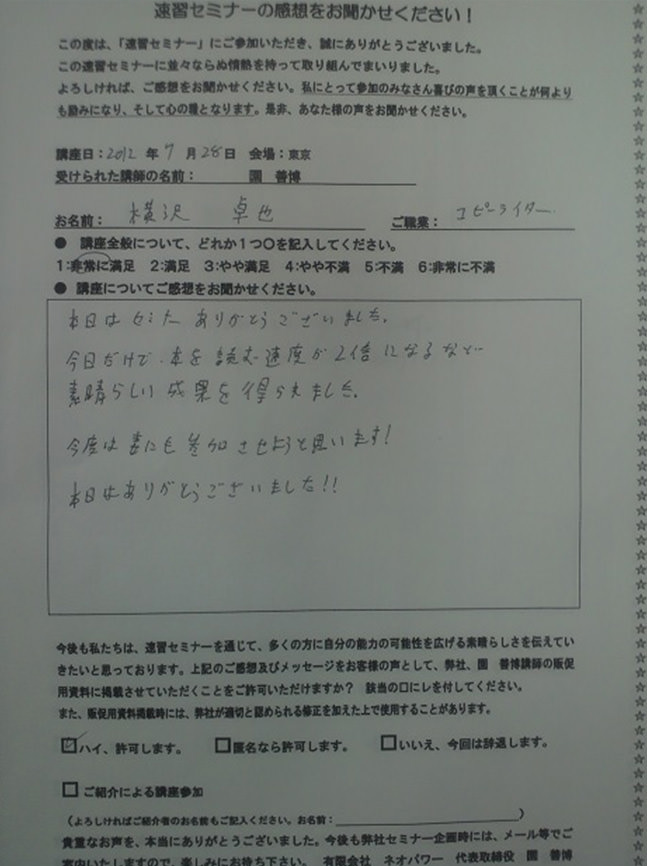 速習セミナーの感想をお聞かせください！
この度は、「速習セミナー」にご参加いただき、誠にありがとうございました。
この速習セミナーに並々ならぬ情熱を持って取り組んでまいりました。
よろしければ、ご感想をお聞かせください。私にとって参加のみなさん喜びの声を頂くことが何より
も励みになり、そして心の糧となります。是非、あなた様の声をお聞かせください。
講座日：2012 年 7 月 28日 会場：東京
受けられた講師の名前： 園 善博
お名前： 横沢 卓也 ご職業： コピーライター
● 講座全般について、どれか１つ○を記入してください。
1：非常に満足 2：満足 3：やや満足 4：やや不満 5：不満 6：非常に不満
● 講座についてご感想をお聞かせください。
本日は ありがとうございました。
今日だけで、本を読む速度が2倍になるなど
素晴らしい成果を得られました。
今度は妻にも参加させようと思います！
本日はありがとうございました！！
今後も私たちは、速習セミナーを通じて、多くの方に自分の能力の可能性を広げる素晴らしさを伝えてい
きたいと思っております。上記のご感想及びメッセージをお客様の声として、弊社、園 善博講師の販促
用資料に掲載させていただくことをご許可いただけますか？ 該当の口にレを付してください。
また、販促用資料掲載時には、弊社が適切と認められる修正を加えた上で使用することがあります。
☑ハイ、許可します。 □匿名なら許可します。 □いいえ、今回は辞退します。
□ご紹介による講座参加
（よろしければご紹介者のお名前もご記入ください。お名前： ）
貴重なお声を、本当にありがとうございました。今後も弊社セミナー企画時には、メール等でご
案内いたしますので、楽しみにお待ち下さい。 有限会社 ネオパワー 代表取締役 園 善博